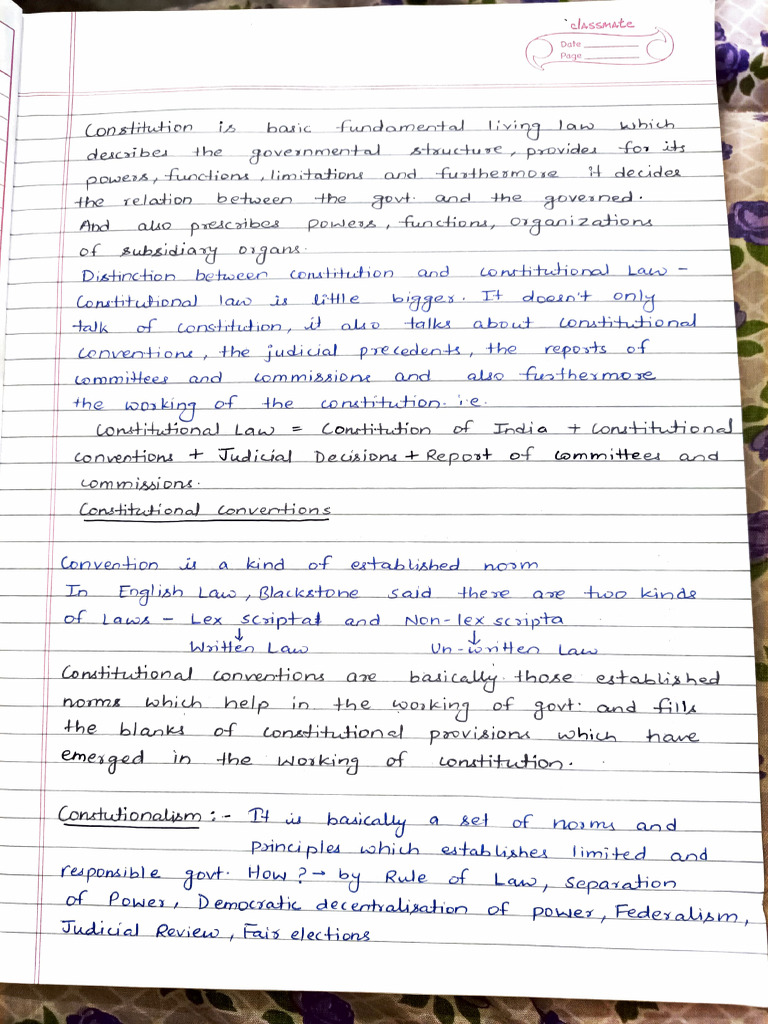 classmate
Date
Page
Constitution is basic fundamental living law which
describes the governmental structure, provides for its
powers, functions, limitations and furthermore it decides
the relation between the govt. and the governed.
And also prescribes powers, functions, organizations
of subsidiary organs.
Distinction between constitution and constitutional Law -
Constitutional law is little bigger. It doesn't only
talk of constitution, it also talks about constitutional
conventions, the judicial precedents, the reports of
committees and commissions and also furthermore
the working of the constitution. i.e.
Constitutional Law = Constitution of India + Constitutional
conventions + Judicial Decisions + Report of committees and
commissions.
Constitutional conventions
Convention is a kind of established norm
In English Law, Blackstone said there are two kinds
of Laws - Lex scripta and Non-lex scripta
↓ ↓
Written Law Un-written Law
Constitutional conventions are basically those established
norms which help in the working of govt. and fills
the blanks of constitutional provisions which have
emerged in the working of constitution.
Constutionalism :- It is basically a set of norms and
principles which establishes limited and
responsible govt. How? → by Rule of Law, Separation
of Power, Democratic decentralisation of power, Federalism,
Judicial Review, Fair elections